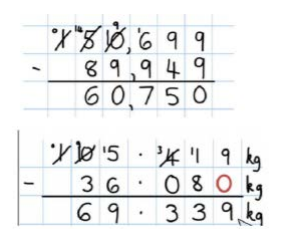 150,699
- 89,949
60,750
105.419 kg
- 36.080 kg
69.339 kg